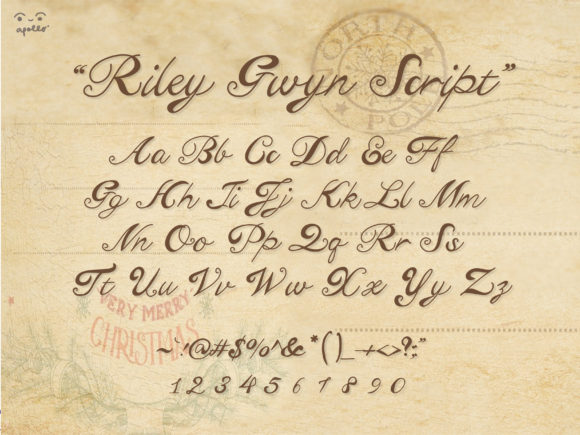 apollo
ORTH
POL
"Riley Gwyn Script"
Aa Bb Cc Dd Ee Ff
Gg Hh Ii Jj Kk Ll Mm
Nn Oo Pp Qq Rr Ss
Tt Uu Vv Ww Xx Yy Zz
VERY MERRY
CHRISTMAS
~`!@#$%^&*()_-+<>?:;"
1 2 3 4 5 6 7 8 9 0